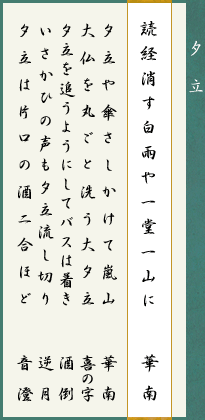 夕立
読経消す白雨や一堂一山に 華南
夕立や傘さしかけて嵐山 華南
大仏を丸ごと洗う大夕立 喜の字
夕立を追うようにしてバスは着き 酒倒
いさかひの声も夕立流し切り 逆月
夕立は片口の酒二合ほど 音澄